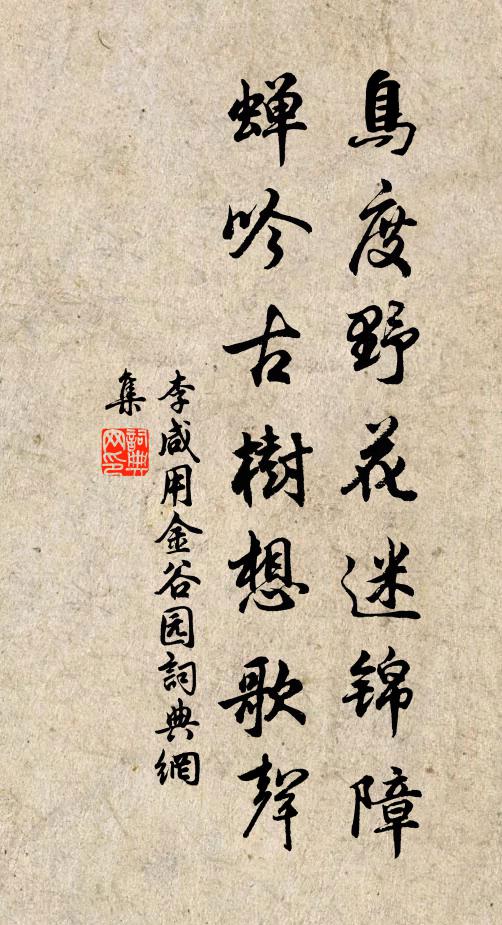 鳥度野花迷锦障
蝉吟古樹想歌聲
李咸用金谷园詞典網
集
詞典
网印